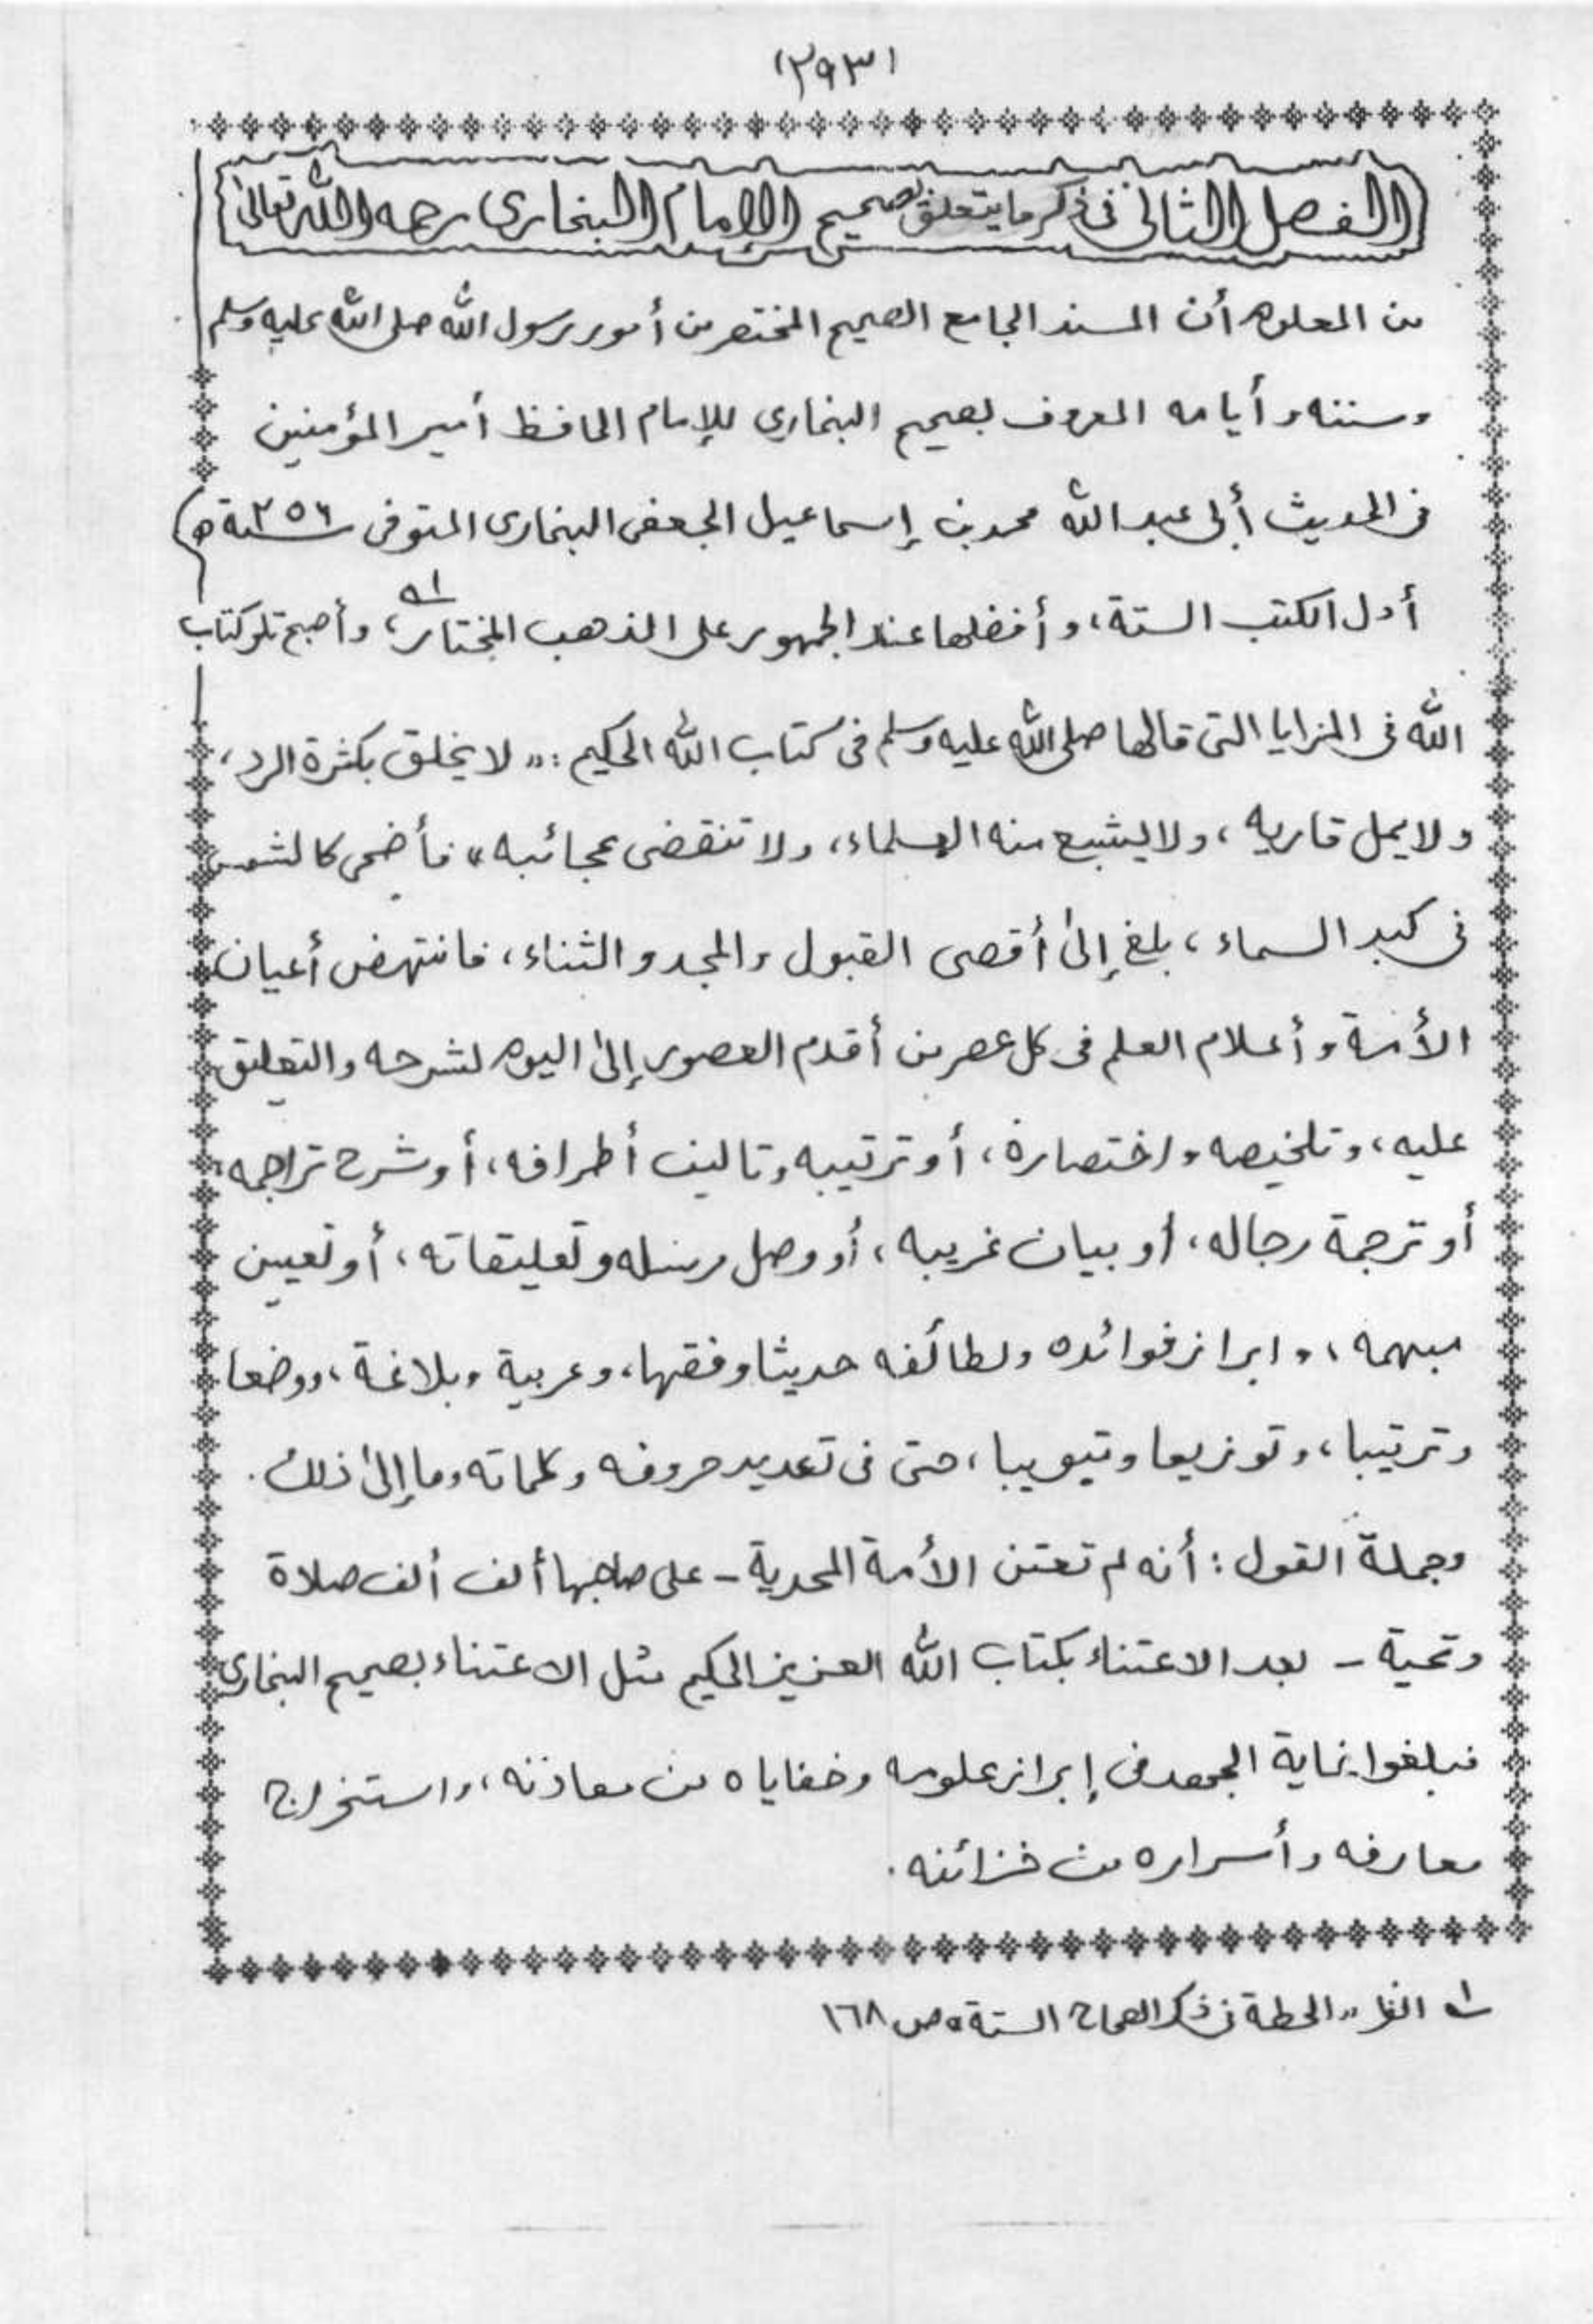 (٢٩٣)
الفصل الثاني في ذكر ما يتعلق بصحيح الإمام البخاري رحمه الله تعالى
من المعلوم أن المسند الجامع الصحيح المختصر من أمور رسول الله صلى الله عليه وسلم
وسننه وأيامه المعروف بصحيح البخاري للإمام الحافظ أمير المؤمنين
في الحديث أبي عبد الله محمد بن إسماعيل الجعفي البخاري المتوفى سنة ٢٥٦ھ
أول الكتب الستة، وأفضلها عند الجمهور على المذهب المختار،١ه وأصبح تلو كتاب
الله في المزايا التي قالها صلى الله عليه وسلم في كتاب الله الحكيم: "لا يخلق بكثرة الرد،
ولا يمل قاريه، ولا يشبع منه العلماء، ولا تنقضي عجائبه" فأضحى كالشمس
في كبد السماء، بلغ إلى أقصى القبول والمجد والثناء، فانتهض أعيان
الأمة وأعلام العلم في كل عصر من أقدم العصور إلى اليوم لشرحه والتعليق
عليه، وتلخيصه واختصاره، أو ترتيبه وتاليف أطرافه، أو شرح تراجمه،
أو ترجمة رجاله، أو بيان غريبه، أو وصل مرسله وتعليقاته، أو تعيين
مبهمه، وابراز فوائده ولطائفه حديثا وفقها، وعربية وبلاغة، ووضعا
وترتيبا، وتوزيعا وتبويبا، حتى في تعديد حروفه وكلماته وما إلى ذلك.
وجملة القول: أنه لم تعتن الأمة المحمدية - على صاحبها ألف ألف صلاة
وتحية - بعد الاعتناء بكتاب الله العزيز الحكيم مثل الاعتناء بصحيح البخاري
فبلغوا نهاية الجهد في إبراز علومه وخفاياه من معادنه، واستخراج
معارفه وأسراره من خزائنه.
١ه انظر "الحطة في ذكر الصحاح الستة" ص ١٦٨